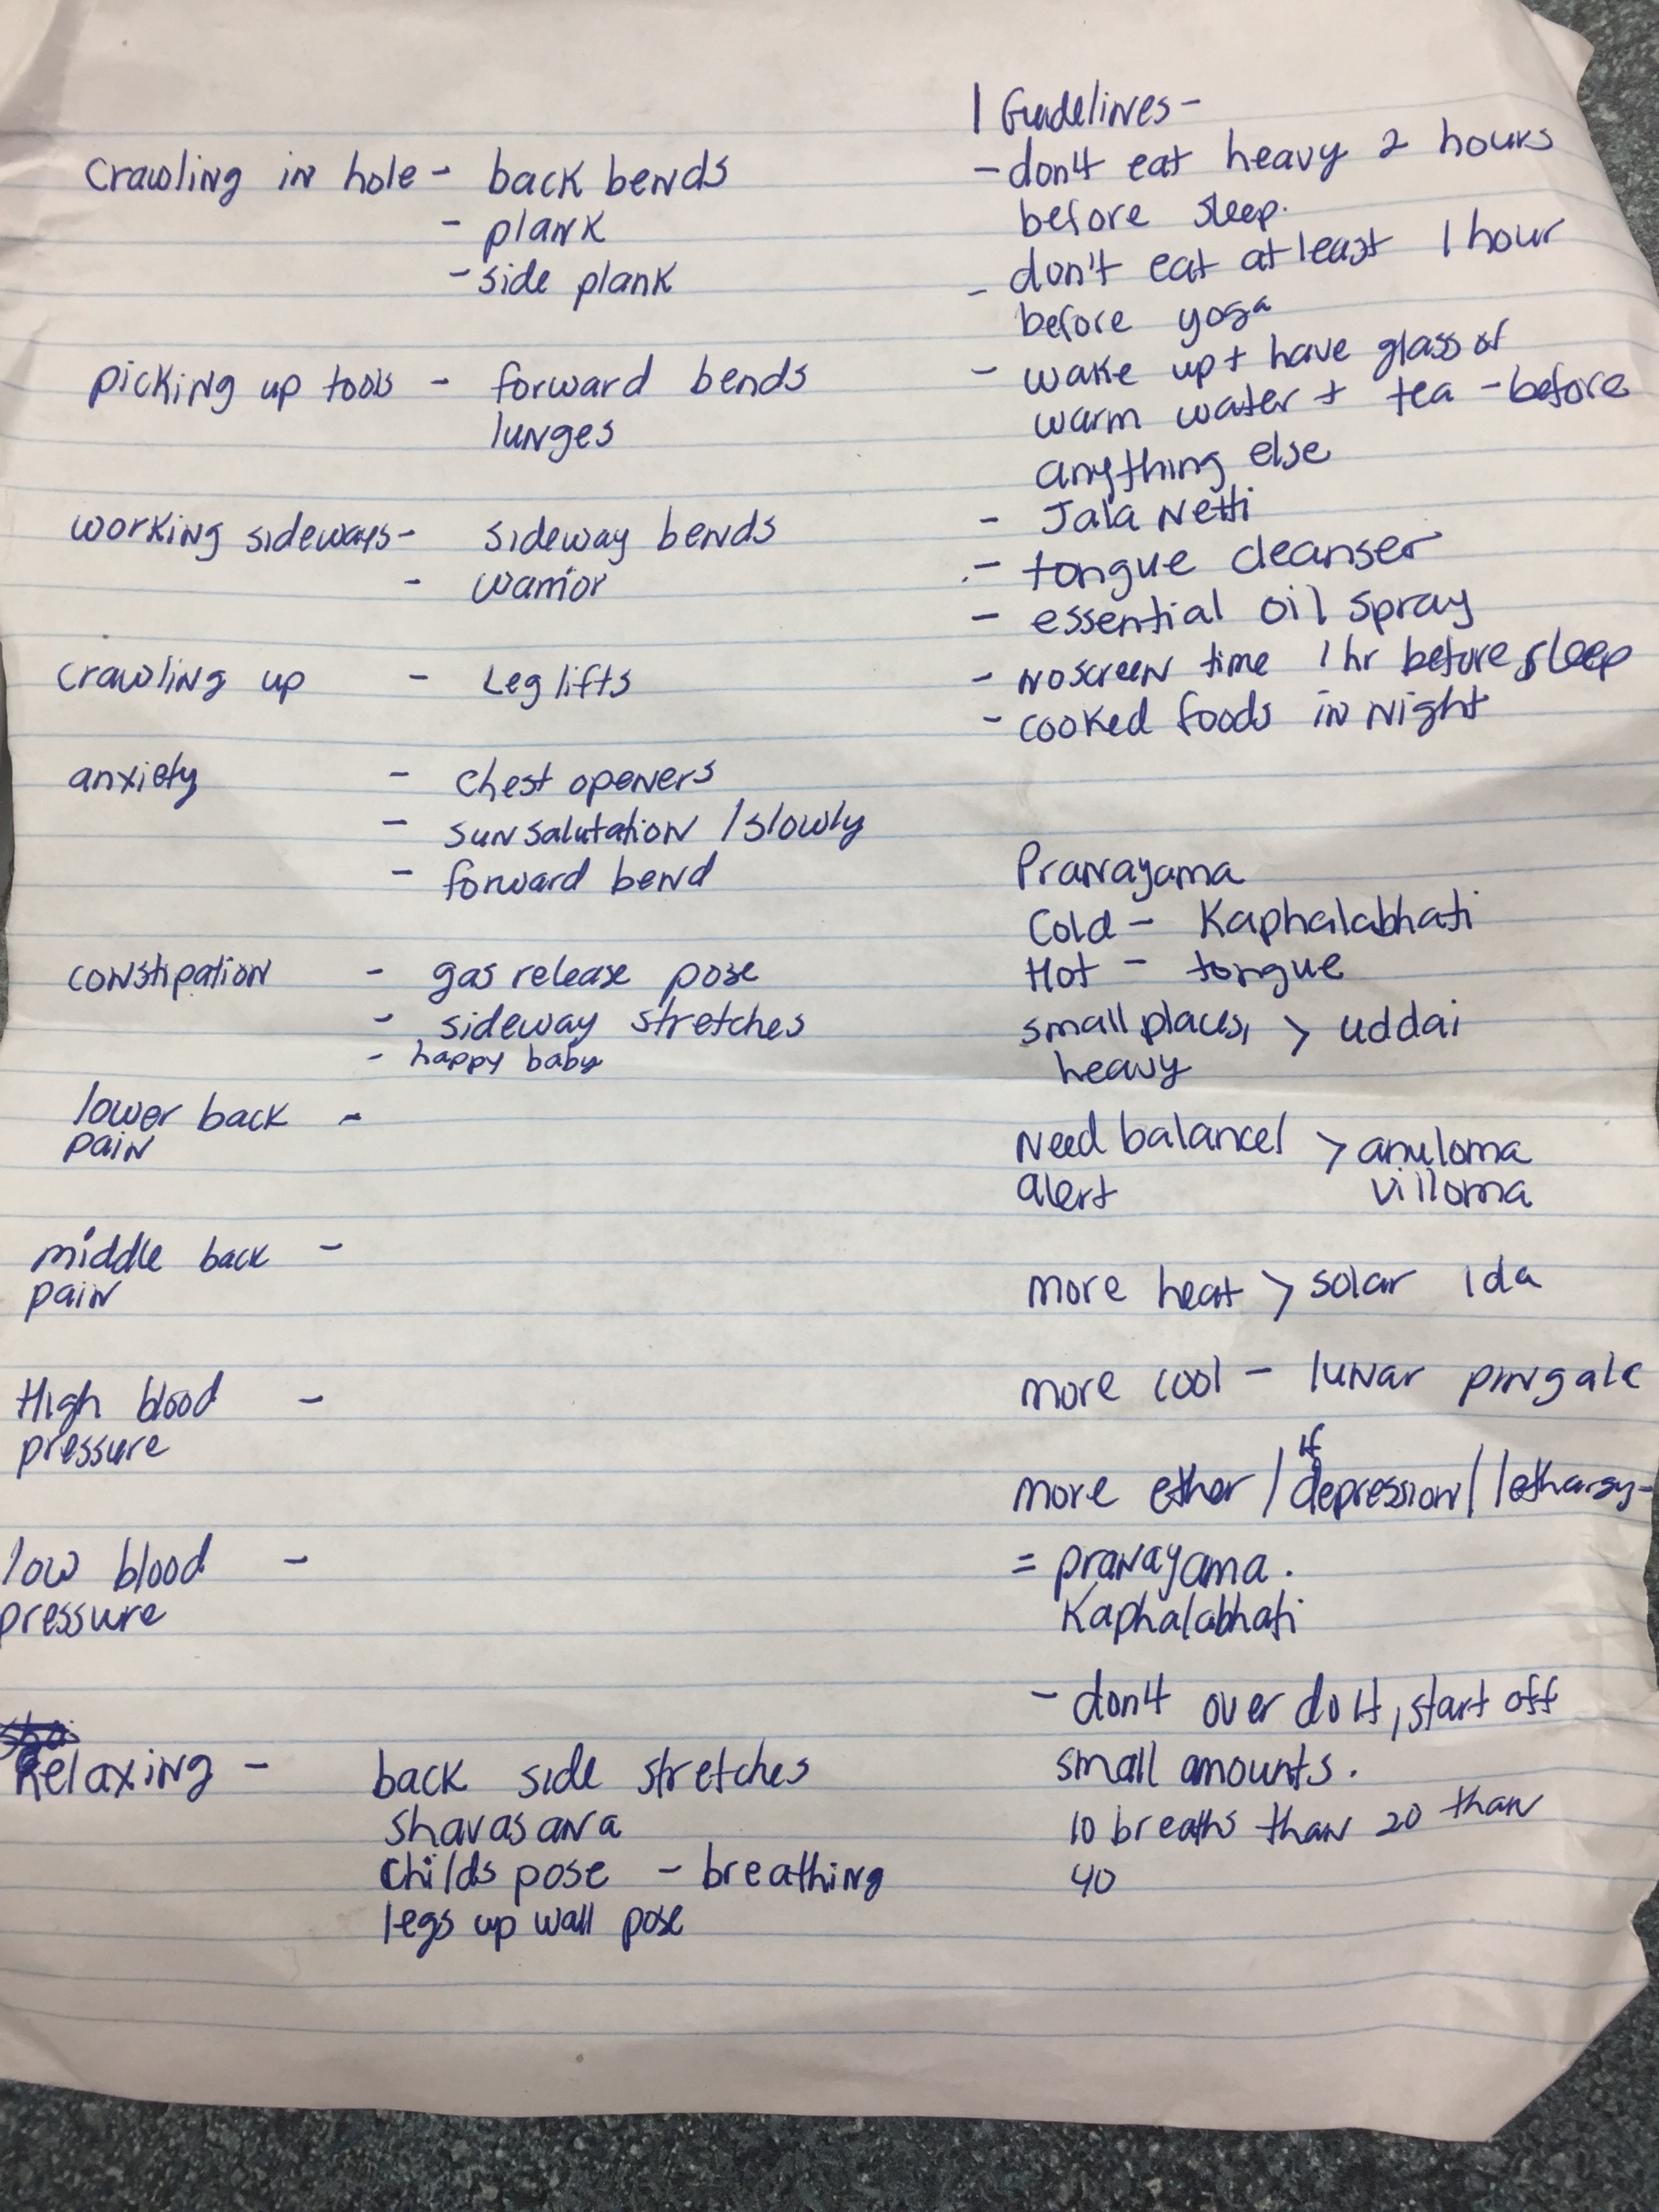 Crawling in hole - back bends
- plank
- side plank
picking up tools - forward bends
lunges
working sideways - sideway bends
- warrior
crawling up - Leg lifts
anxiety - chest openers
- sun salutation / slowly
- forward bend
constipation - gas release pose
- sideway stretches
- happy baby
lower back -
pain
middle back -
pain
High blood -
pressure
low blood -
pressure
Relaxing - back side stretches
shavasana
childs pose - breathing
legs up wall pose
Guidelines -
- don't eat heavy 2 hours
before sleep.
- don't eat at least 1 hour
before yoga
- wake up + have glass of
warm water + tea - before
anything else
- Jala Netti
- tongue cleanser
- essential oil spray
- no screen time 1 hr before sleep
- cooked foods in night
Pranayama
Cold - Kaphalabhati
Hot - tongue
small places, > uddai
heavy
Need balance/ > anuloma
alert villoma
more heat > solar ida
more cool - lunar pingala
if
more ether / depression / lethargy -
= pranayama.
Kaphalabhati
- don't over do it, start off
small amounts.
10 breaths than 20 than
40